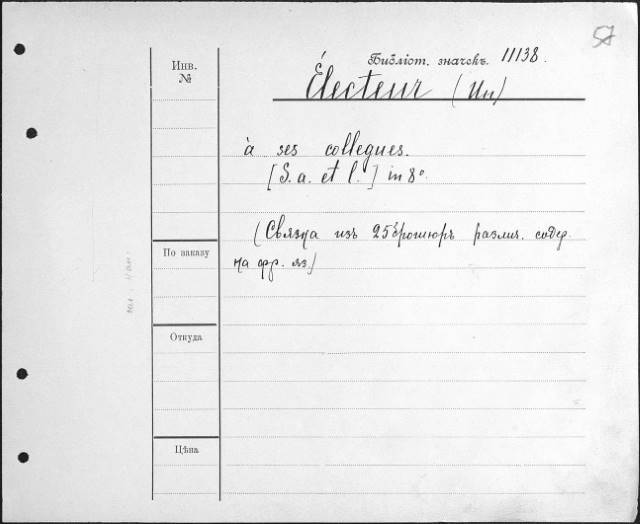 57
Инв.
№
Библіот. значекъ. 11138.
Électeur (Un)
à ses collegues.
[S. a. et l.] in 8º.
(Связка изъ 25 брошюръ различ. содер.
на фр. яз.)
По заказу
Откуда
Цѣна